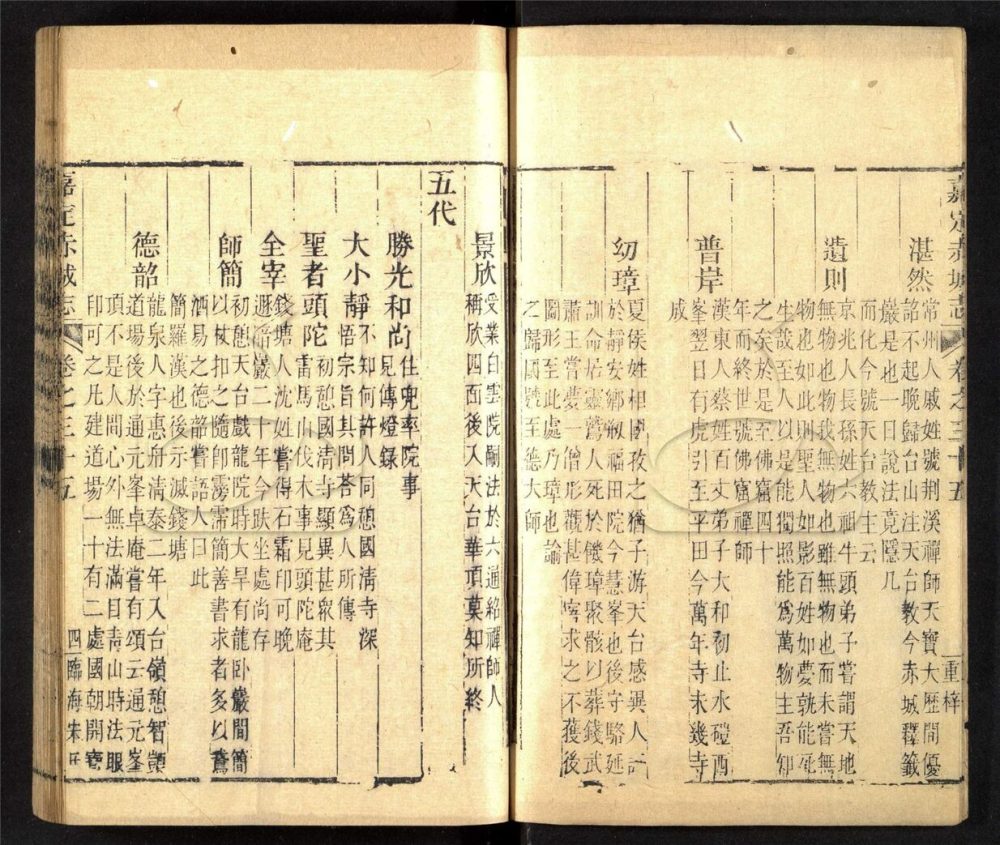 嘉定赤城志 卷之三十五 重梓
湛然
常州人戚姓號荆溪禪師天寶大歷間優
詔不起晚歸台山注天台教今赤城釋籤
嚴是也一日說法竟隱几
而化今號天台教主云
遺則
京兆人長孫姓六祖牛頭弟子嘗謂天地
無物也物我無物也雖無物也而未嘗無
物也如此則聖人如影百姓如夢孰能死
生哉至人以是能獨照能爲萬物主吾知
之矣於是至佛窟四十
年而終世號佛窟禪師
普岸
漢東人蔡姓百丈弟子大和初止水磑酉
峯翌日有虎引至平田今萬年寺未幾寺
成
幼璋
夏侯姓相國孜之猶子游天台感異人
於靜安鄉刱福田院今慧峯也後守駱延
訓命居靈鷲人死於儉璋聚骸以葬錢武
肅王嘗夢一僧形觀甚偉求之不獲後
圖形至此處乃璋也諭
之歸國號至德大師
景欣
受業白雲院嗣法於六通紹禪師人
稱欣四面後入天台華頂莫知所終
五代
勝光和尚 住兜率院事
見傳燈錄
大小靜 不知何許人同憩國清寺深
悟宗旨其問荅爲人所傳
聖者頭陀 初憩國清寺顯異甚衆其
雷馬山伐木事見頭陀庵
全宰
錢塘人沈姓嘗得石霜印可晚
遯暗巖二十年今趺坐處尚存
師簡
初憩天台戲龍院時大旱有龍卧巖間簡
以杖扣之隨卽霶霈簡善書求者多以鵞
酒易之德韶嘗語人曰此
簡羅漢也後示滅錢塘
德韶
龍泉人字惠舟淸泰二年入台嶺憩智顗
道場後於通元峯卓庵嘗有頌云通元峯
頂不是人間心外無法滿目靑山時法眼
印可之凡建道場一十有二處國朝開寶
嘉定赤城志 卷之三十五 四 臨海朱氏